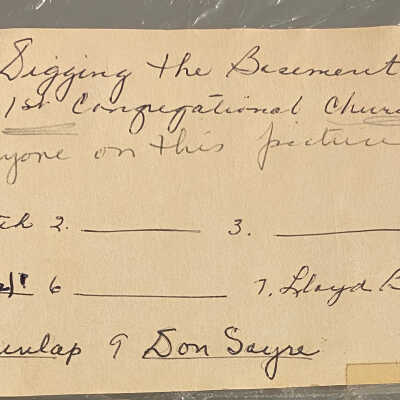 Digging the Basement
1st Congregational Chur
yone on this picture
2. 3.
6 7. Lloyd B
unlap 9 Don Sayre